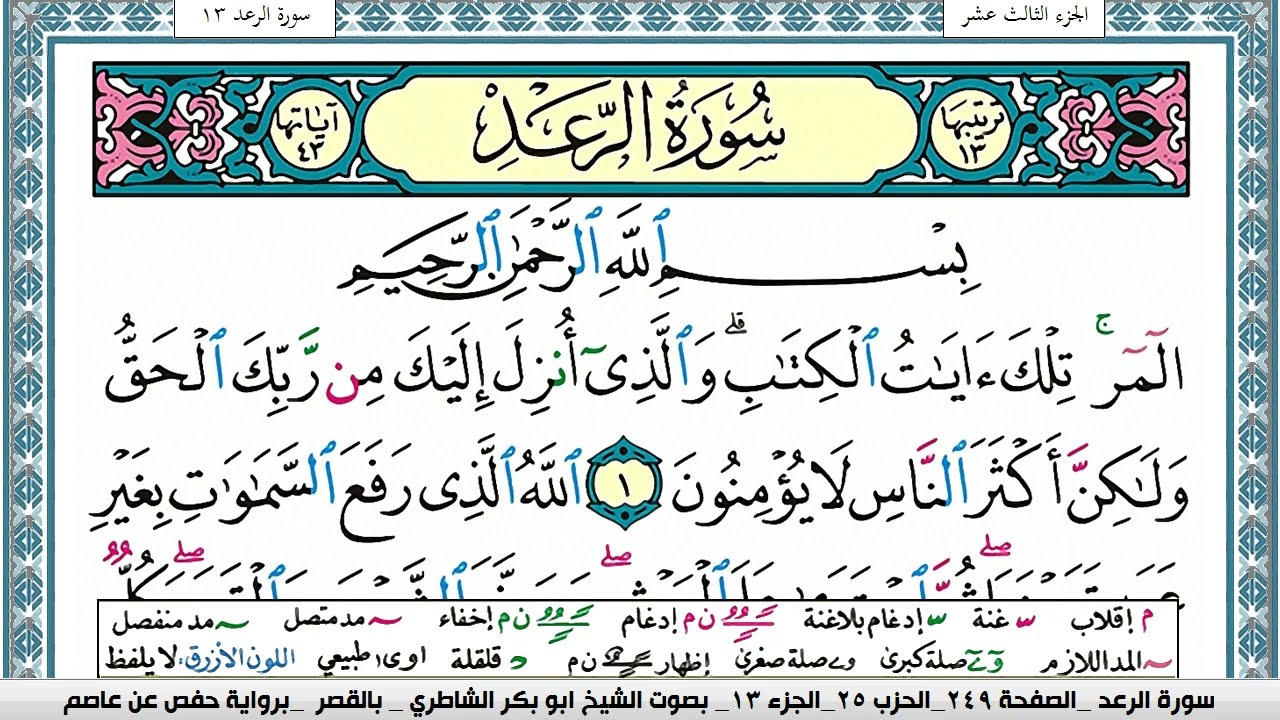 الجزء الثالث عشر
سورة الرعد ١٣
ترتيبها ١٣
سُورَةُ الرَّعْدِ
آياتها ٤٣
بِسْمِ ٱللَّهِ ٱلرَّحْمَٰنِ ٱلرَّحِيمِ
الٓمٓرۚ تِلْكَ ءَايَٰتُ ٱلْكِتَٰبِۗ وَٱلَّذِىٓ أُنزِلَ إِلَيْكَ مِن رَّبِّكَ ٱلْحَقُّ
وَلَٰكِنَّ أَكْثَرَ ٱلنَّاسِ لَا يُؤْمِنُونَ ١ ٱللَّهُ ٱلَّذِى رَفَعَ ٱلسَّمَٰوَٰتِ بِغَيْرِ
م إقلاب س غنة س إدغام بلاغنة ن م إدغام ن م إخفاء ~ مد متصل ~ مد منفصل
~ المد اللازم و ے صلة كبرى و ے صلة صغرى إظهار ن م د قلقلة ا و ى طبيعي اللون الأزرق: لا يلفظ
سورة الرعد _الصفحة ٢٤٩_الحزب ٢٥_الجزء ١٣_ بصوت الشيخ ابو بكر الشاطري _ بالقصر _برواية حفص عن عاصم